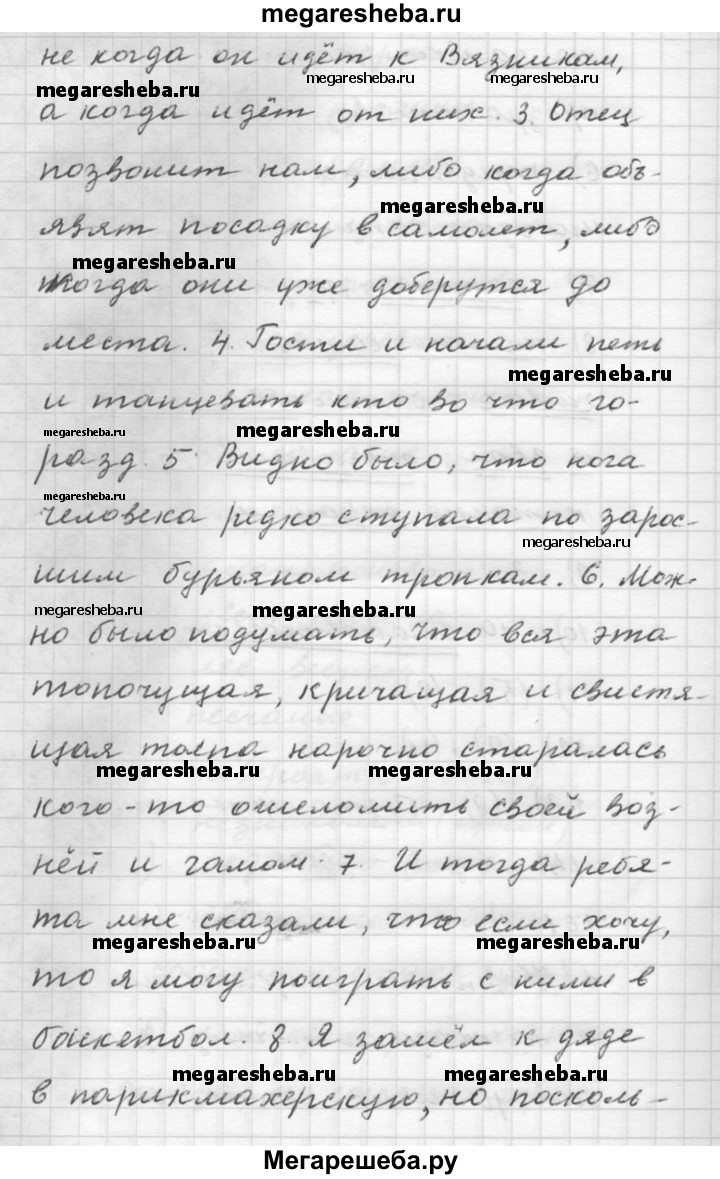 megaresheba.ru
не когда он идёт к Вязникам,
megaresheba.ru megaresheba.ru megaresheba.ru
а когда идёт от них. 3. Отец
позвонит нам, либо когда объ-
megaresheba.ru
явят посадку в самолет, либо
megaresheba.ru
когда они уже доберутся до
места. 4. Гости и начали петь
megaresheba.ru
и танцевать кто во что го-
megaresheba.ru megaresheba.ru
разд. 5. Видно было, что нога
megaresheba.ru
человека редко ступала по зарос-
megaresheba.ru
шим бурьяном тропкам. 6. Мож-
megaresheba.ru megaresheba.ru
но было подумать, что вся эта
топочущая, кричащая и свистя-
щая толпа нарочно старалась
megaresheba.ru megaresheba.ru
кого-то ошеломить своей воз-
нёй и гамом. 7. И тогда ребя-
та мне сказали, что если хочу,
megaresheba.ru megaresheba.ru
то я могу поиграть с ними в
баскетбол. 8. Я зашёл к дяде
megaresheba.ru megaresheba.ru
в парикмахерскую, но посколь-
Мегарешеба.ру